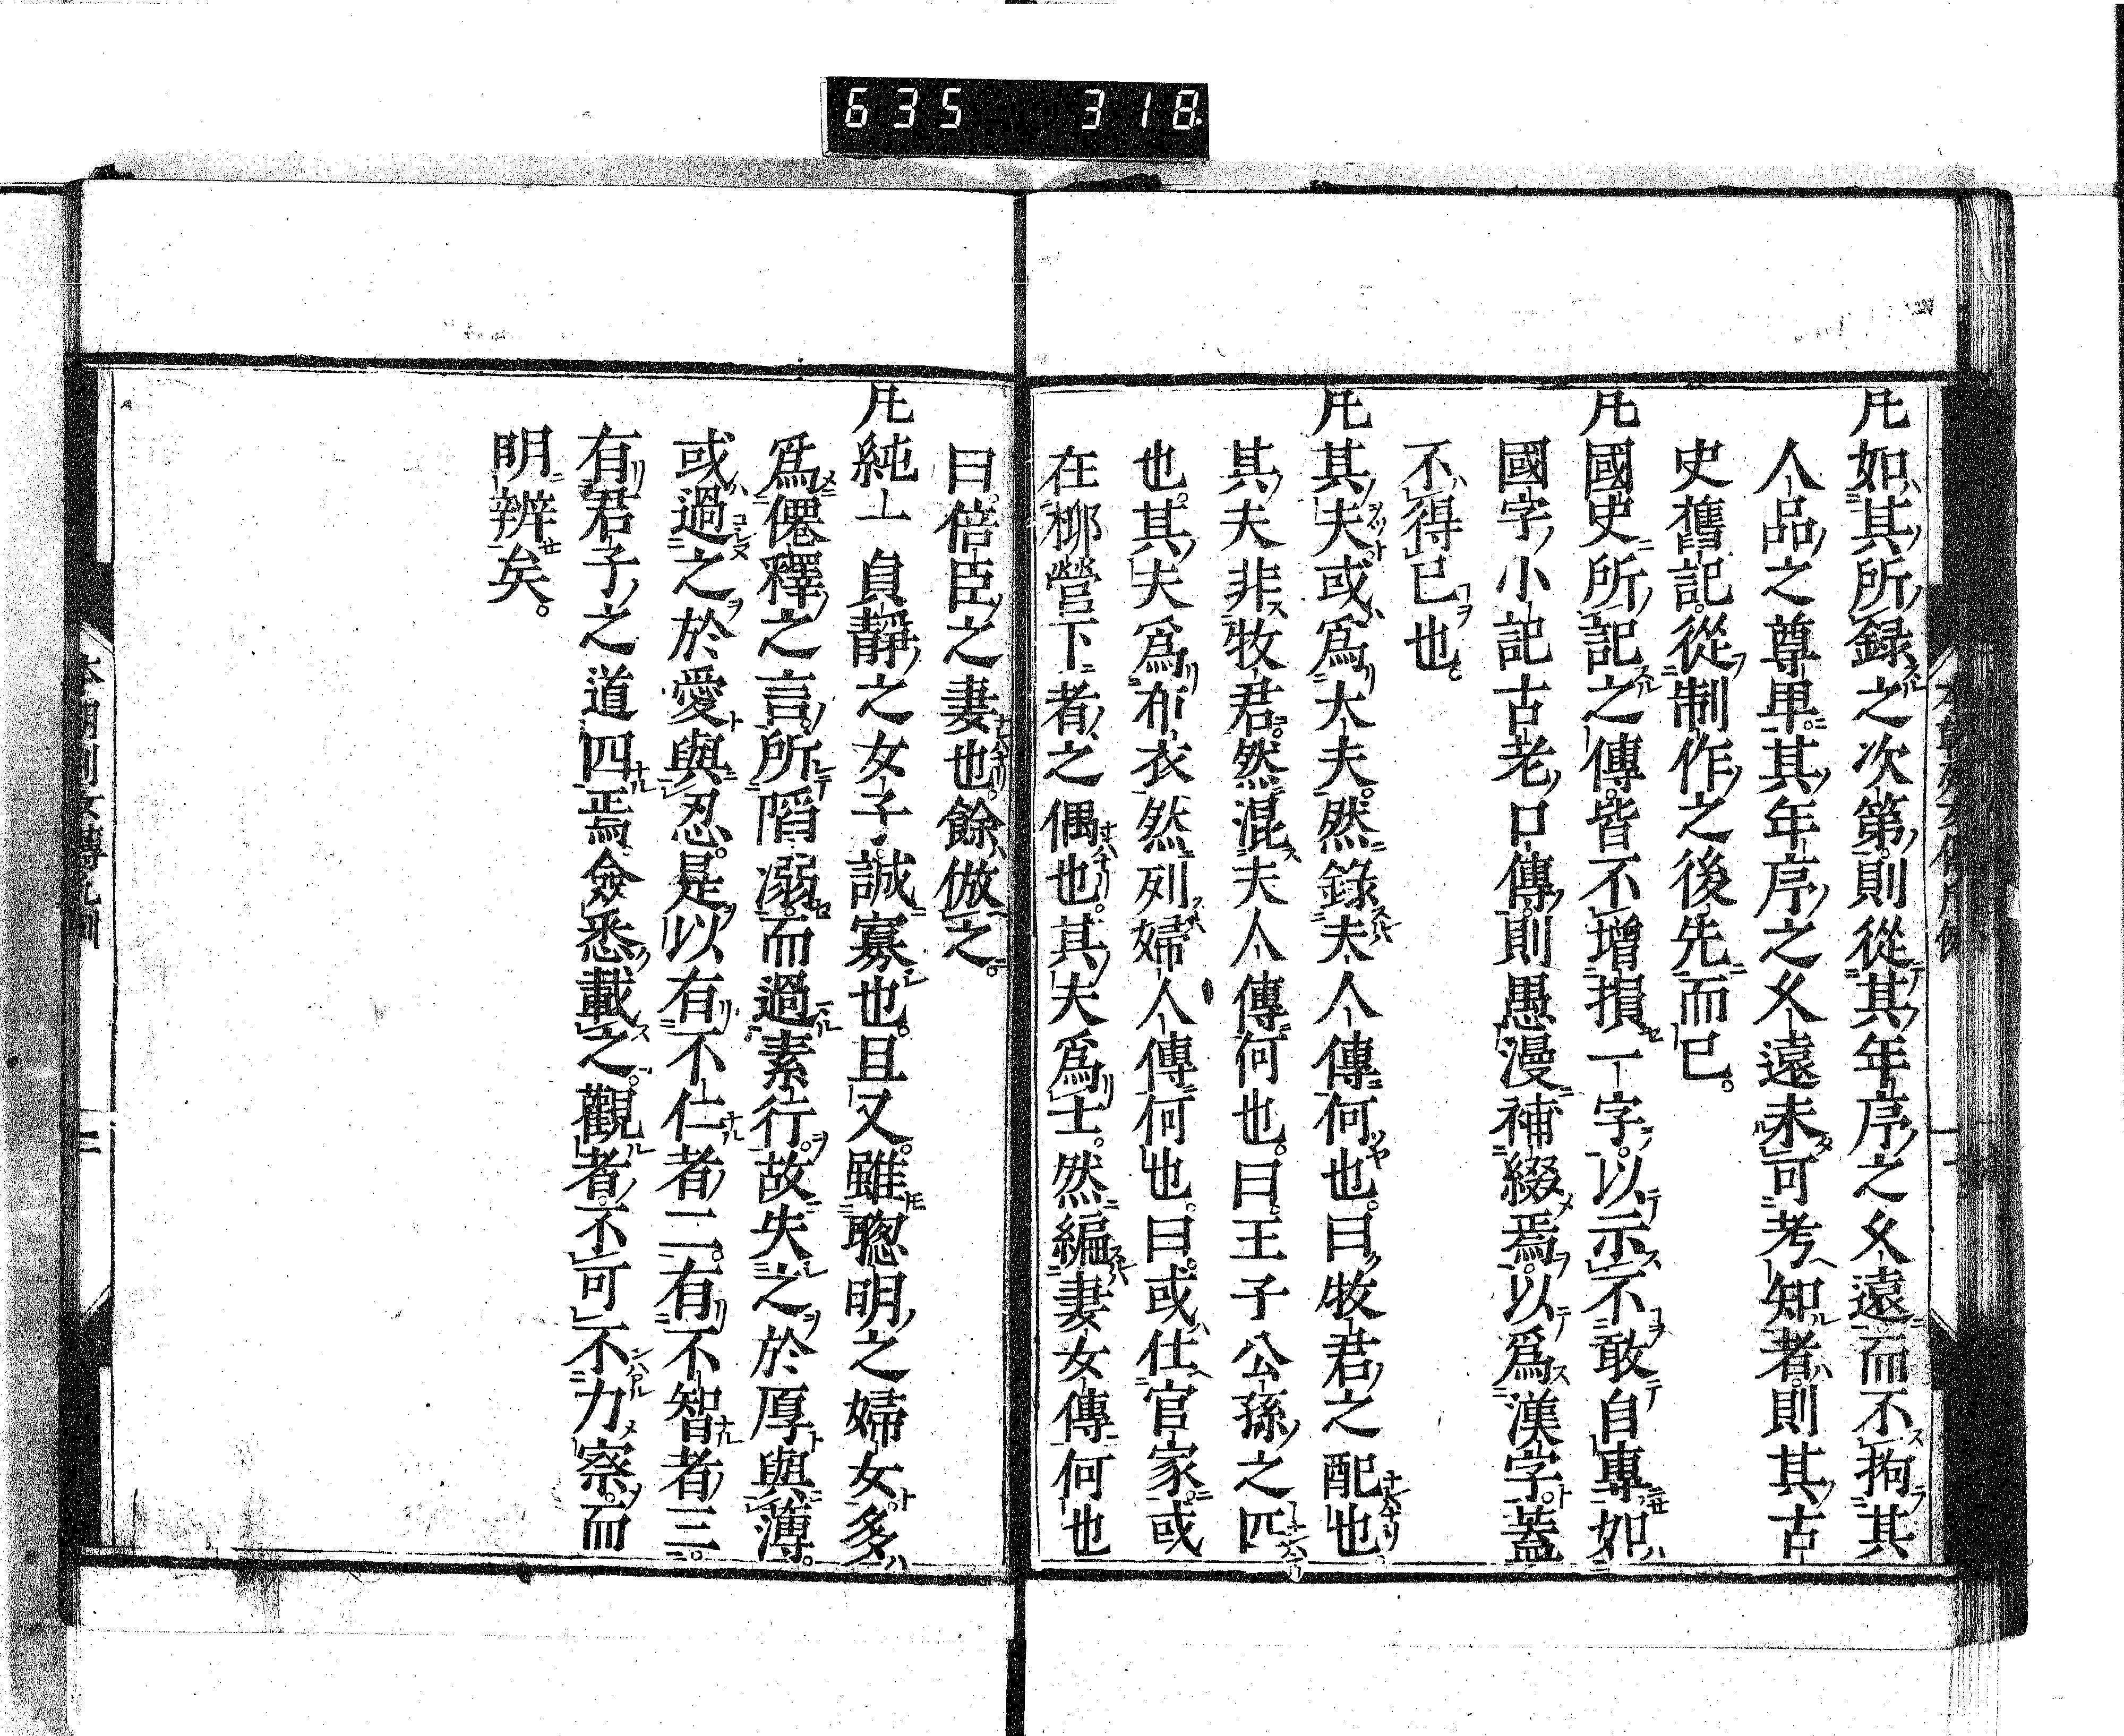 635 318
凡如其所録之次第則從其年序之久遠而不拘其
人品之尊卑其年序之久遠未可考知者則其古
史舊記從制作之後先而已
凡國史所記之傳皆不增損一字以示不敢自專如
國字小記古老口傳則愚漫補綴焉以爲漢字蓋
不得已也
凡其夫或爲大夫然錄夫人傳何也曰牧君之配也
其夫非牧君然混夫人傳何也曰王子公孫之匹
也其夫爲布衣然列婦人傳何也曰或仕官家或
在柳營下者之偶也其夫爲士然編妻女傳何也
曰倍臣之妻也餘倣之
凡純一貞靜之女子誠寡也且又雖聰明之婦女多
爲僊釋之言所陷溺而過素行故失之於厚與薄
或過之於愛與忍是以有不仁者二有不智者三
有君子之道四焉僉悉載之觀者不可不力察而
明辨矣
本朝列女傳凡例 二